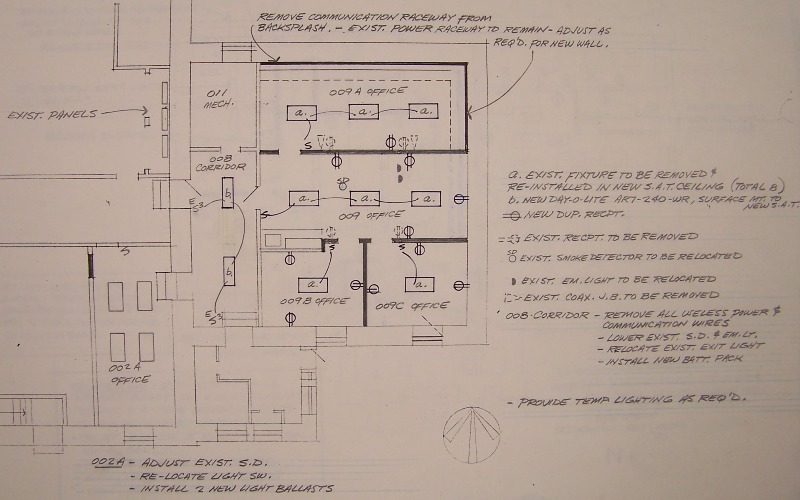 REMOVE COMMUNICATION RACEWAY FROM
BACKSPLASH. - EXIST. POWER RACEWAY TO REMAIN - ADJUST AS
REQ'D. FOR NEW WALL.
EXIST. PANELS
011
MECH.
009A OFFICE
a. a. a.
S
008
CORRIDOR
b.
E
S3
SD
a. a. a.
S
009 OFFICE
S
b.
E
S3
S
S
a.
009B OFFICE
a.
009C OFFICE
002A
OFFICE
a. EXIST. FIXTURE TO BE REMOVED &
RE-INSTALLED IN NEW S.A.T. CEILING (TOTAL 8)
b. NEW DAY-O-LITE ART-240-WR, SURFACE MT. TO
NEW S.A.T.
NEW DUP. RECPT.
EXIST. RECPT. TO BE REMOVED
SD
EXIST. SMOKE DETECTOR TO BE RELOCATED
EXIST. EM. LIGHT TO BE RELOCATED
EXIST. COAX. J.B. TO BE REMOVED
008-CORRIDOR - REMOVE ALL USELESS POWER &
COMMUNICATION WIRES
- LOWER EXIST. S.D. & EM. LT.
- RELOCATE EXIST. EXIT LIGHT
- INSTALL NEW BATT. PACK
- PROVIDE TEMP LIGHTING AS REQ'D.
002A - ADJUST EXIST. S.D.
- RE-LOCATE LIGHT SW.
- INSTALL 2 NEW LIGHT BALLASTS